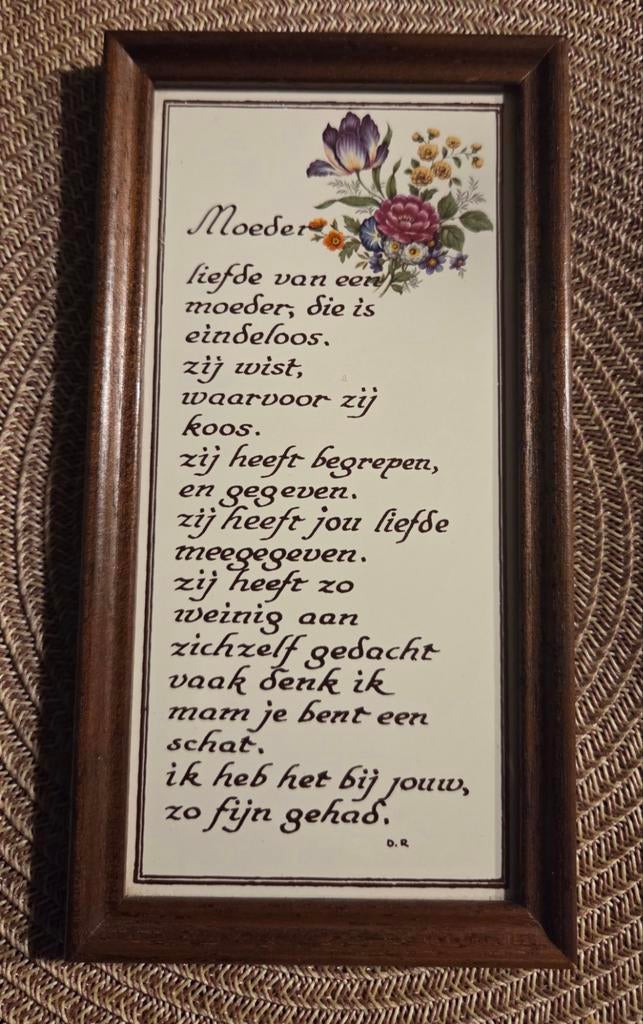 Moeder
liefde van een
moeder, die is
eindeloos.
zij wist,
waarvoor zij
koos.
zij heeft begrepen,
en gegeven.
zij heeft jou liefde
meegegeven.
zij heeft zo
weinig aan
zichzelf gedacht
vaak denk ik
mam je bent een
schat.
ik heb het bij jouw,
zo fijn gehad.
D.R